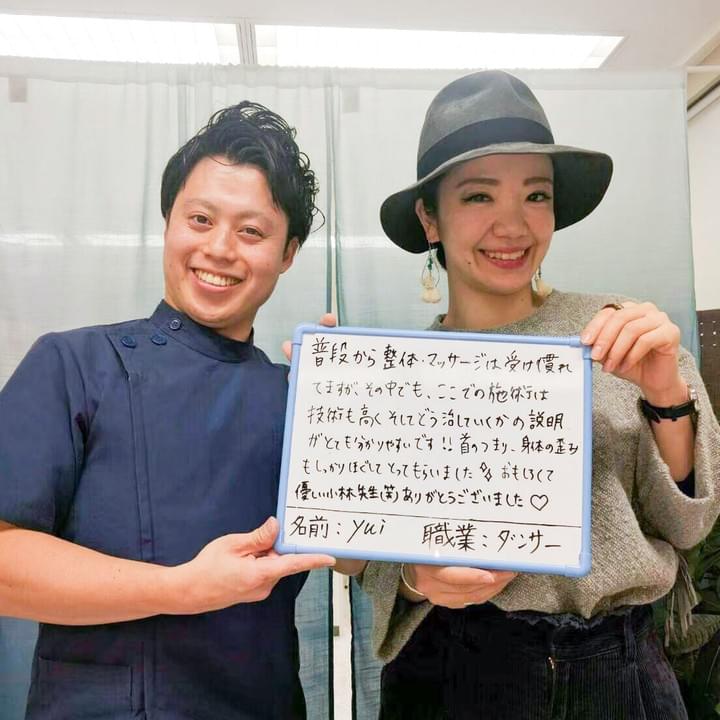 普段から整体・マッサージは受け慣れ
てますが、その中でも、ここでの施術は
技術も高く そしてどう治していくかの説明
がとても分かりやすいです!! 首のつまり、身体の歪み
もしっかりほぐしてとってもらいました おもしろくて
優しい小林先生(笑)ありがとうございました♡
名前:yui 職業:ダンサー